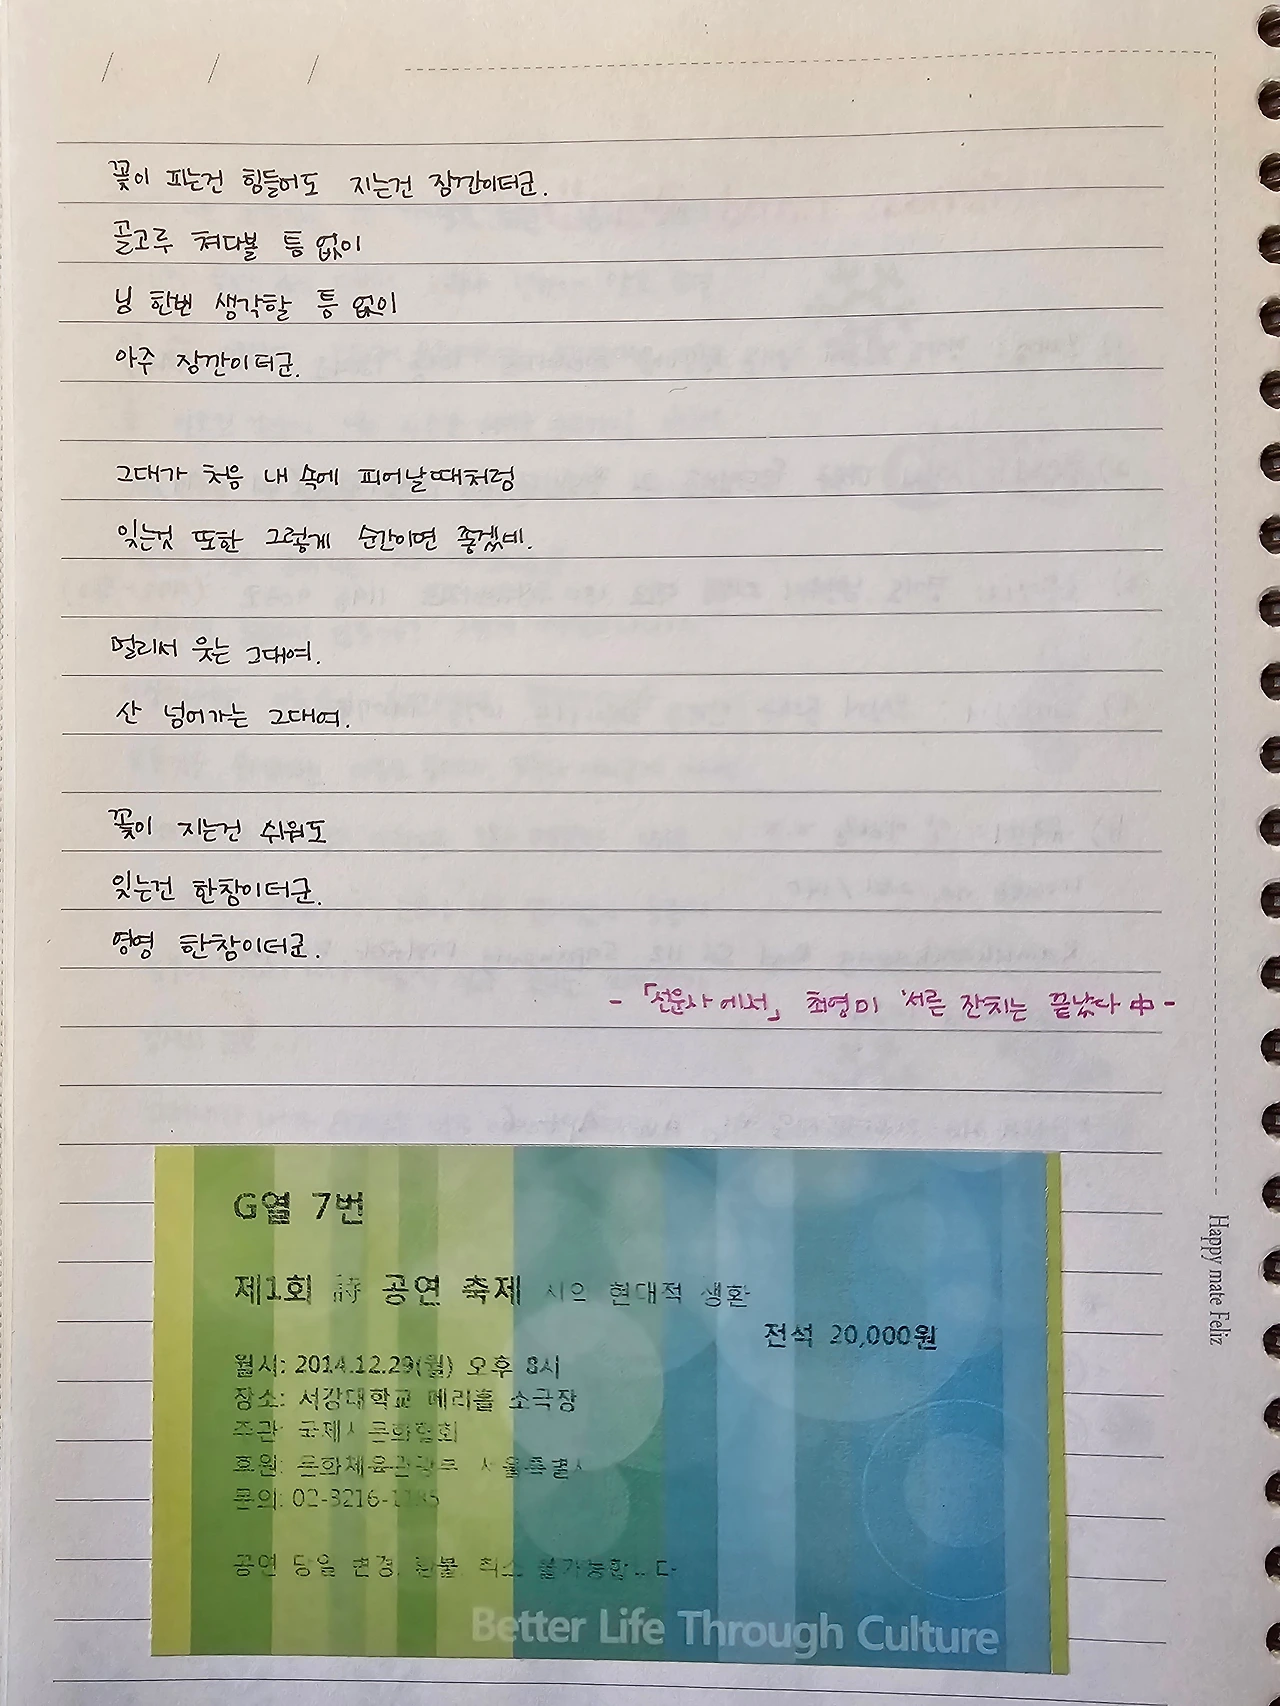 꽃이 피는건 힘들어도 지는건 잠깐이더군.
골고루 쳐다볼 틈 없이
님 한번 생각할 틈 없이
아주 잠깐이더군.
그대가 처음 내 속에 피어날때처럼
잊는것 또한 그렇게 순간이면 좋겠네.
멀리서 웃는 그대여.
산 넘어가는 그대여.
꽃이 지는건 쉬워도
잊는건 한참이더군.
영영 한참이더군.
- 「선운사에서」 최영미 '서른 잔치는 끝났다 中 -
G열 7번
제1회 詩 공연 축제 시의 현대적 생환
전석 20,000원
일시: 2014.12.29(월) 오후 8시
장소: 서강대학교 메리홀 소극장
주관: 국제시문화협회
후원: 문화체육관광부 서울특별시
문의: 02-3216-1185
공연 당일 변경, 환불, 취소 불가능합니다
Better Life Through Culture
Happy mate Feliz